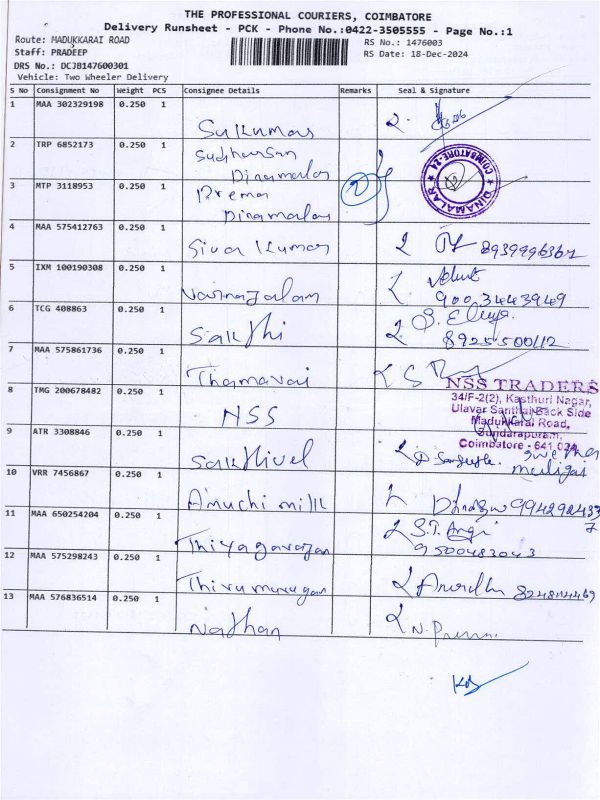 THE PROFESSIONAL COURIERS, COIMBATORE
Delivery Runsheet - PCK - Phone No.:0422-3505555 - Page No.:1
Route: MADUKKARAI ROAD
RS No.: 1476003
Staff: PRADEEP
RS Date: 18-Dec-2024
DRS No.: DCJB147600301
Vehicle: Two Wheeler Delivery
S No Consignment No Weight PCS Consignee Details Remarks Seal & Signature
1 MAA 302329198 0.250 1 Sukumar
2 TRP 6852173 0.250 1 Sudharsan
Dinamalar
3 MTP 3118953 0.250 1 Prema
Dinamalar
2
COIMBATORE-24 DINAMALAR
4 MAA 575412763 0.250 1 Siva Kumar 8939996367
5 IXM 100190308 0.250 1
9003443949
6 TCG 408863 0.250 1 Sakthi
8925500112
7 MAA 575861736 0.250 1
8 TMG 200678482 0.250 1 NSS
NSS TRADERS
34/F-2(2), Kasthuri Nagar,
Ulavar Santhai Back Side
Madukkarai Road,
Sundarapuram,
Coimbatore - 641 024
9 ATR 3308846 0.250 1 Sakthivel
10 VRR 7456867 0.250 1 milk
11 MAA 650254204 0.250 1 Thiyagarajan S.T.
9500483043
12 MAA 575298243 0.250 1 Thirumurugan
13 MAA 576836514 0.250 1 Nathan